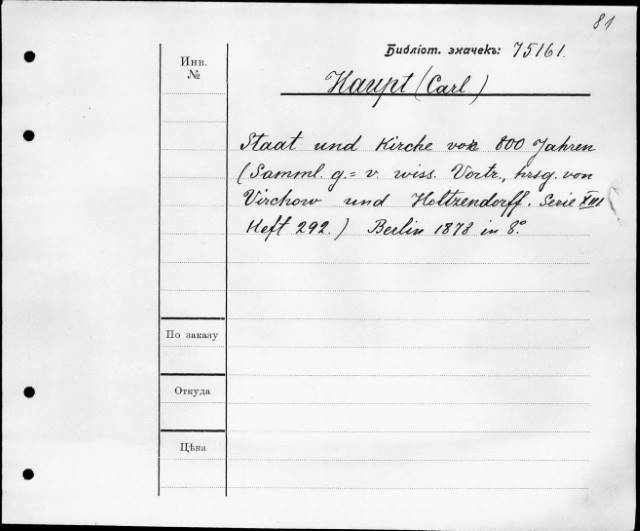 81
Библіот. значекъ: 75161.
Инв.
№
Haupt (Carl)
Staat und Kirche vor 800 Jahren
(Samml. g.= v. wiss. Vortr., hrsg. von
Virchow und Holtzendorff. Serie XIII
Heft 292.) Berlin 1878 in 8°.
По заказу
Откуда
Цѣна